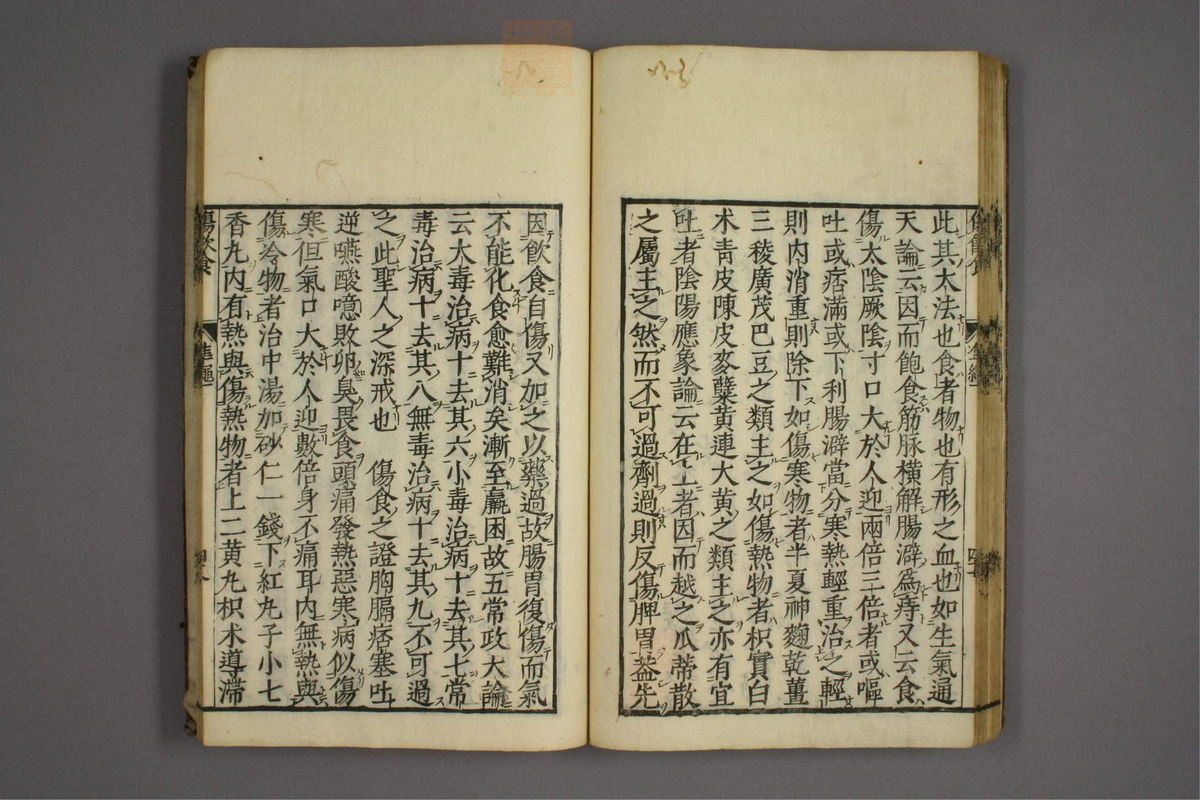 此其大法也食者物也有形之血也如生氣通
天論云因而飽食筋脉橫解腸澼爲痔又云食
傷太陰厥陰寸口大於人迎兩倍三倍者或嘔
吐或痞滿或下利腸澼當分寒熱輕重治之輕
則内消重則除下如傷寒物者半夏神麯乾薑
三稜廣茂巴豆之類主之如傷熱物者枳實白
术靑皮陳皮麥糵黃連大黃之類主之亦有宜
吐者陰陽應象論云在上者因而越之瓜蒂散
之屬主之然而不可過劑過則反傷脾胃葢先
因飮食自傷又加之以藥過故腸胃復傷而氣
不能化食愈難消矣漸至羸困故五常政大論
云大毒治病十去其六小毒治病十去其七常
毒治病十去其八無毒治病十去其九不可過
之此聖人之深戒也　傷食之證胸膈痞塞吐
逆嚥酸噫敗卵臭畏食頭痛發熱惡寒病似傷
寒但氣口大於人迎數倍身不痛耳内無熱與
傷冷物者治中湯加砂仁一錢下紅丸子小七
香丸内有熱與傷熱物者上二黃丸枳术導滯
傷飮食